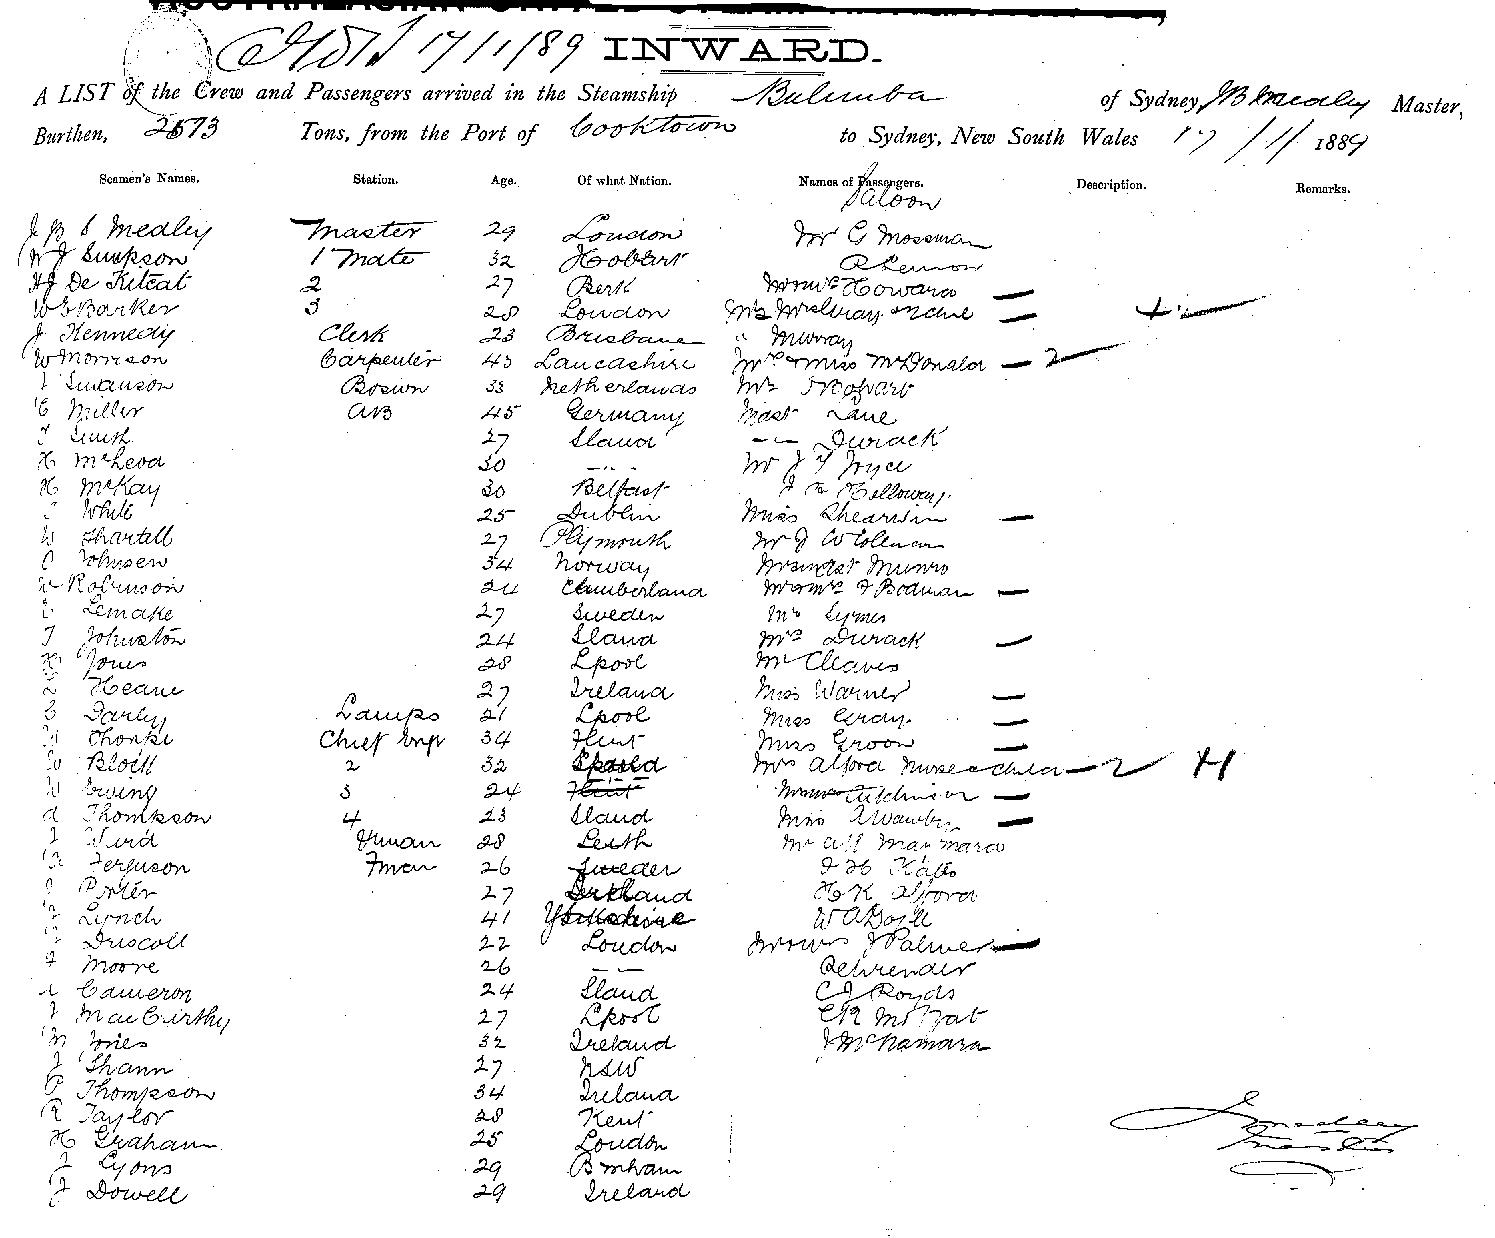 INWARD.
17/1/89
A LIST of the Crew and Passengers arrived in the Steamship Bulimba of Sydney, JB Medley Master,
Burthen, 2573 Tons, from the Port of Cooktown to Sydney, New South Wales 17/1/1889
Seamen's Names. Station. Age. Of what Nation. Names of Passengers. Description. Remarks.
Saloon
J B S Medley Master 29 London Mr G Mossman
W J Simpson 1 Mate 32 Hobart R Lennon
HJ De Kitcat 2 27 Berk Mr & Mrs Howard
W G Barker 3 28 London Mrs
J Kennedy Clerk 23 Brisbane " Murray
W Morrison Carpenter 43 Lancashire Mrs & Miss McDonald 2
J Swanson Bosun 33 Netherlands Mr
C Miller AB 45 Germany Mast Lane
J Smith 27 Sland -- Durack
H McLeod 30 -- Mr J T Joyce
H McKay 30 Belfast Holloway
White 25 Dublin Miss Shearwin
W Shartell 27 Plymouth Mr J W Collman
Johnsen 34 Norway Munro
W Robinson 24 Cumberland Mr & Mrs F Bodman
Lemake 27 Sweden Mr Symes
J Johnston 24 Sland Mrs Durack
H Jones 28 Lpool Mr Cleaves
Heane 27 Ireland Miss Warner
Darby Lamps 21 Lpool Miss Gray
Chief Engr 34 Flint Miss Groon
W Block 2 32 Mrs Alford Nurse & child 2 H
W Erwing 3 24 Flint
A Thompson 4 23 Sland Miss
J Wird 28 Leith Mr
Ferguson Fman 26 Sweden
J Porter 27 H K Alford
J Lynch 41 Yorkshire W A Boyle
J Driscoll 22 London Mr & Mrs J Palmer
J Moore 26 -- Behrender
A Cameron 24 Sland C J Royds
J MacCurthy 27 Lpool C R Moffat
M Jones 32 Ireland J McNamara
J Shann 27 NSW
P Thompson 34 Ireland
R Taylor 28 Kent
H Graham 25 London
J Lyons 29 Bmham
J Dowell 29 Ireland
J Medley
Master